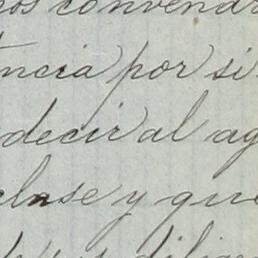 cos convenar
tncia por si
decir al ag
clase y que